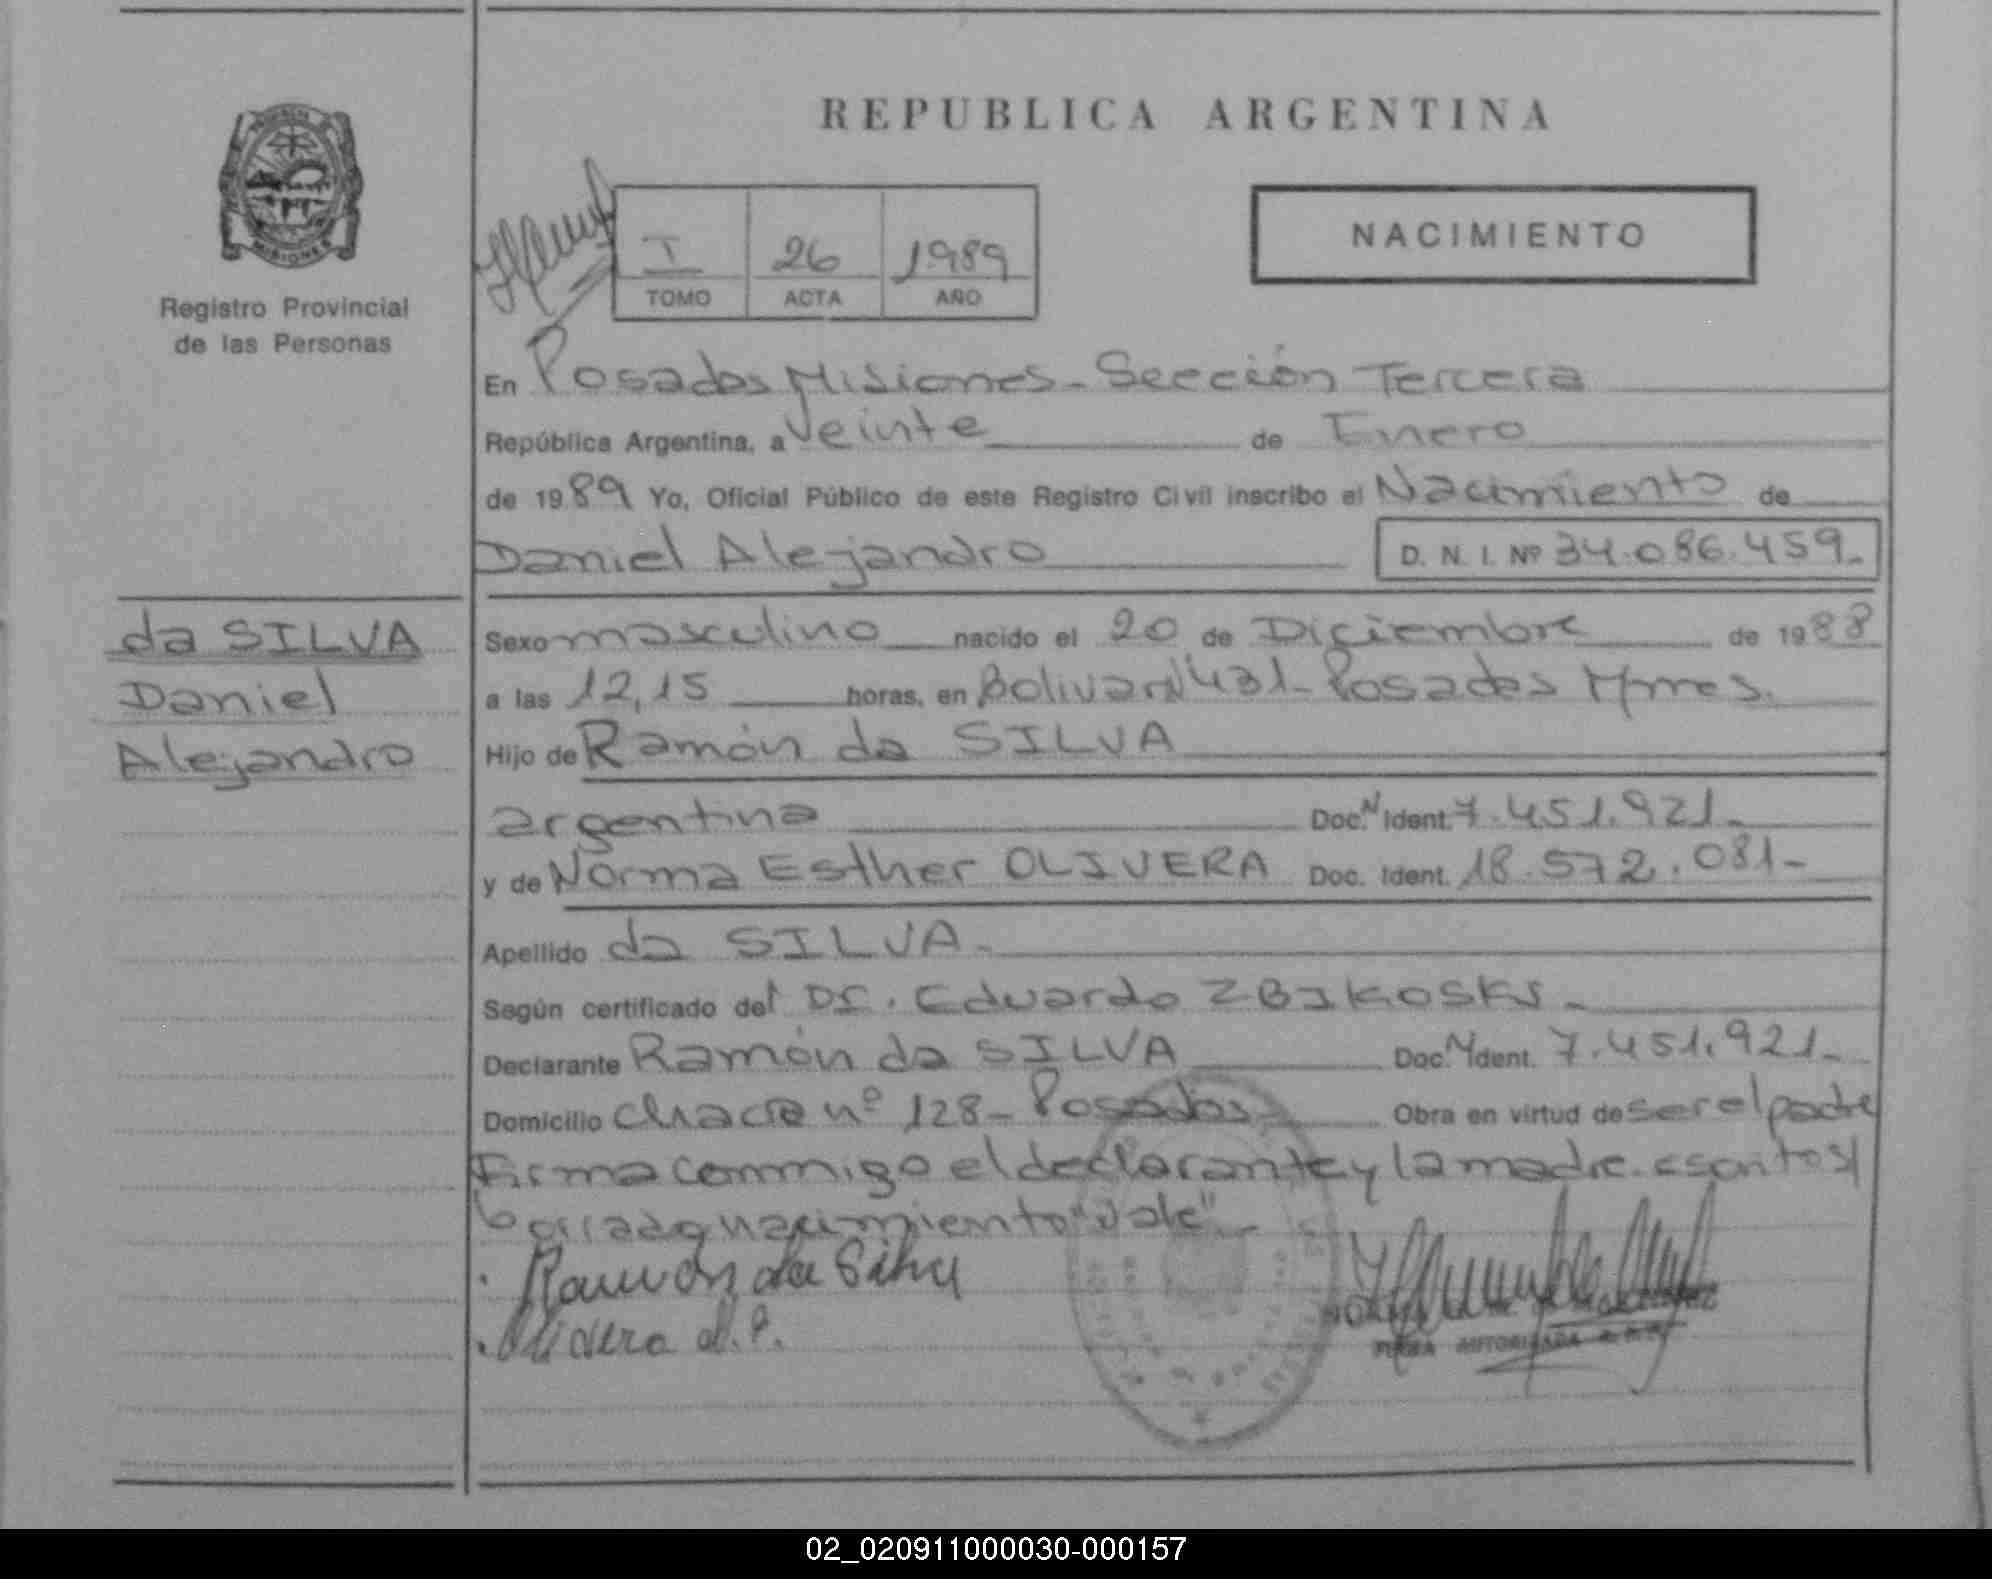 REPUBLICA ARGENTINA
NACIMIENTO
I 26 1989
TOMO ACTA AÑO
MISIONES
Registro Provincial
de las Personas
En Posadas Misiones - Sección Tercera
República Argentina, a Veinte de Enero
de 1989 Yo, Oficial Público de este Registro Civil inscribo el Nacimiento de
Daniel Alejandro D. N. I. Nº 34.086.459.-
da SILVA
Daniel
Alejandro
Sexo masculino nacido el 20 de Diciembre de 1988
a las 12,15 horas, en Bolivar Nº 431 - Posadas Mnes.
Hijo de Ramón da SILVA
argentina Doc. N Ident. 7.451.921.-
y de Norma Esther OLIVERA Doc. Ident. 18.572.081-
Apellido da SILVA.-
Según certificado del Dr. Eduardo ZBIKOSKI.-
Declarante Ramón da SILVA Doc. N Ident. 7.451.921.-
Domicilio Chacra nº 128 - Posadas - Obra en virtud de ser el padre
Firma conmigo el declarante y la madre. escrito s/
borrado nacimiento "vale".-
Ramón da Silva
FIRMA AUTORIZADA
02_020911000030-000157